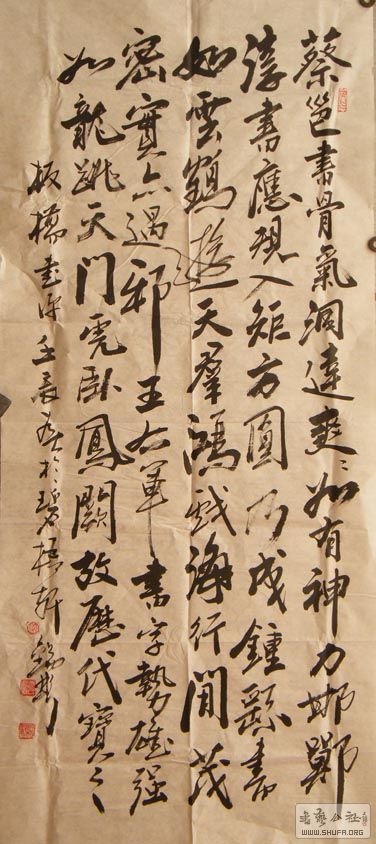 蔡邕書骨氣洞達爽々如有神力邯鄲
淳書應規入矩方圓乃成鍾繇書
如雲鶴遊天羣鴻戲海行間茂
密實亦過邪王右軍書字勢雄强
如龍跳天門虎臥鳳闕故歷代寶之
板橋書 壬辰春於碧梧軒
書藝公社
WWW.SHUFA.ORG